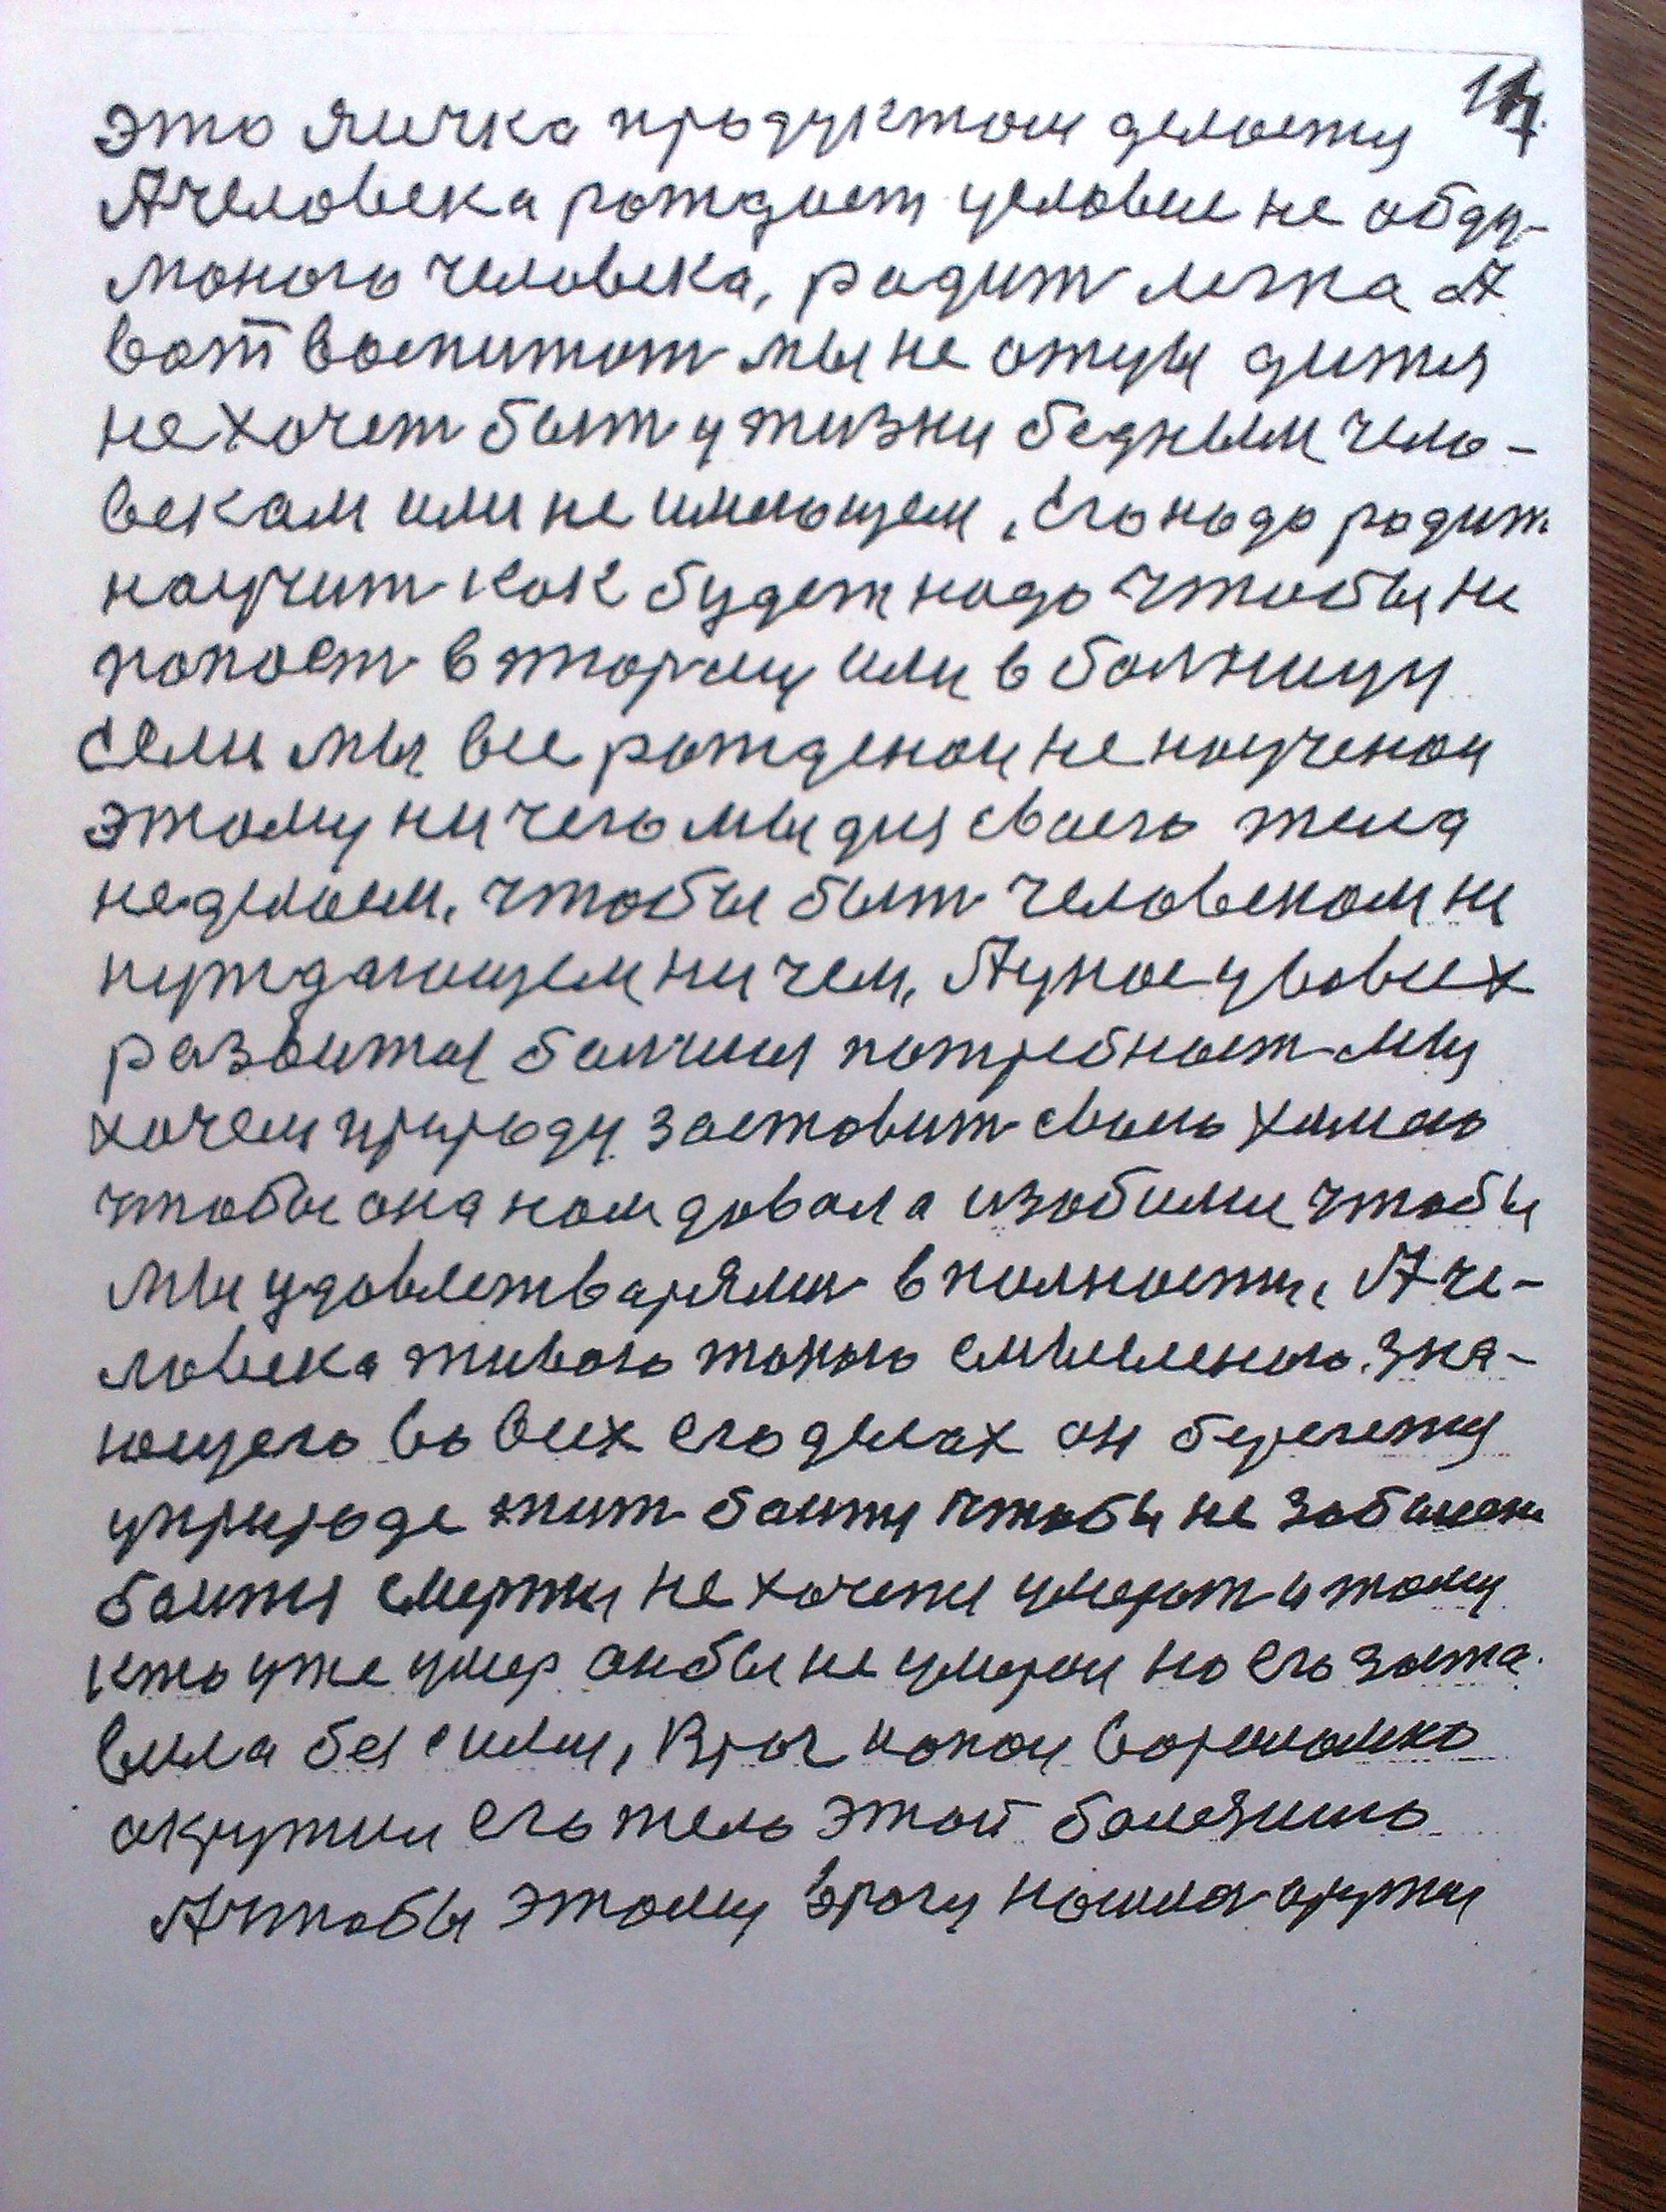 это яичка продуктом делаетя
А человека рождает условие не обду-
моного человека, радит легка А
вот воспитат мы не отцы дитя
не хочет быт у жизни бедным чело-
векам или не имеющем, Его надо радит
научит как будет надо чтобы не
попаст в тюрьму или в болницу
Если мы все рожденаи не наученаи
этому ни чего мы для сваего тела
не делаем, чтобы быт человеком не
нуждающем ни чем, А у нас у вовсех
развитая балшая потребност мы
хочем природу заставит сваею
чтобы она нам давала изобили чтобы
мы удавлетваряли в полности, А че-
ловека живого такого смысленого, зна-
ющего во всех его делах он бережетя
у природе жит баитя чтобы не
баитя смерти не хочетя умерат а тому
кто уже умер он бы не умерал но его заста-
вила без силы, Враг какой
окружил его тело этой балезнию
А чтобы этому врагу нашла оружия